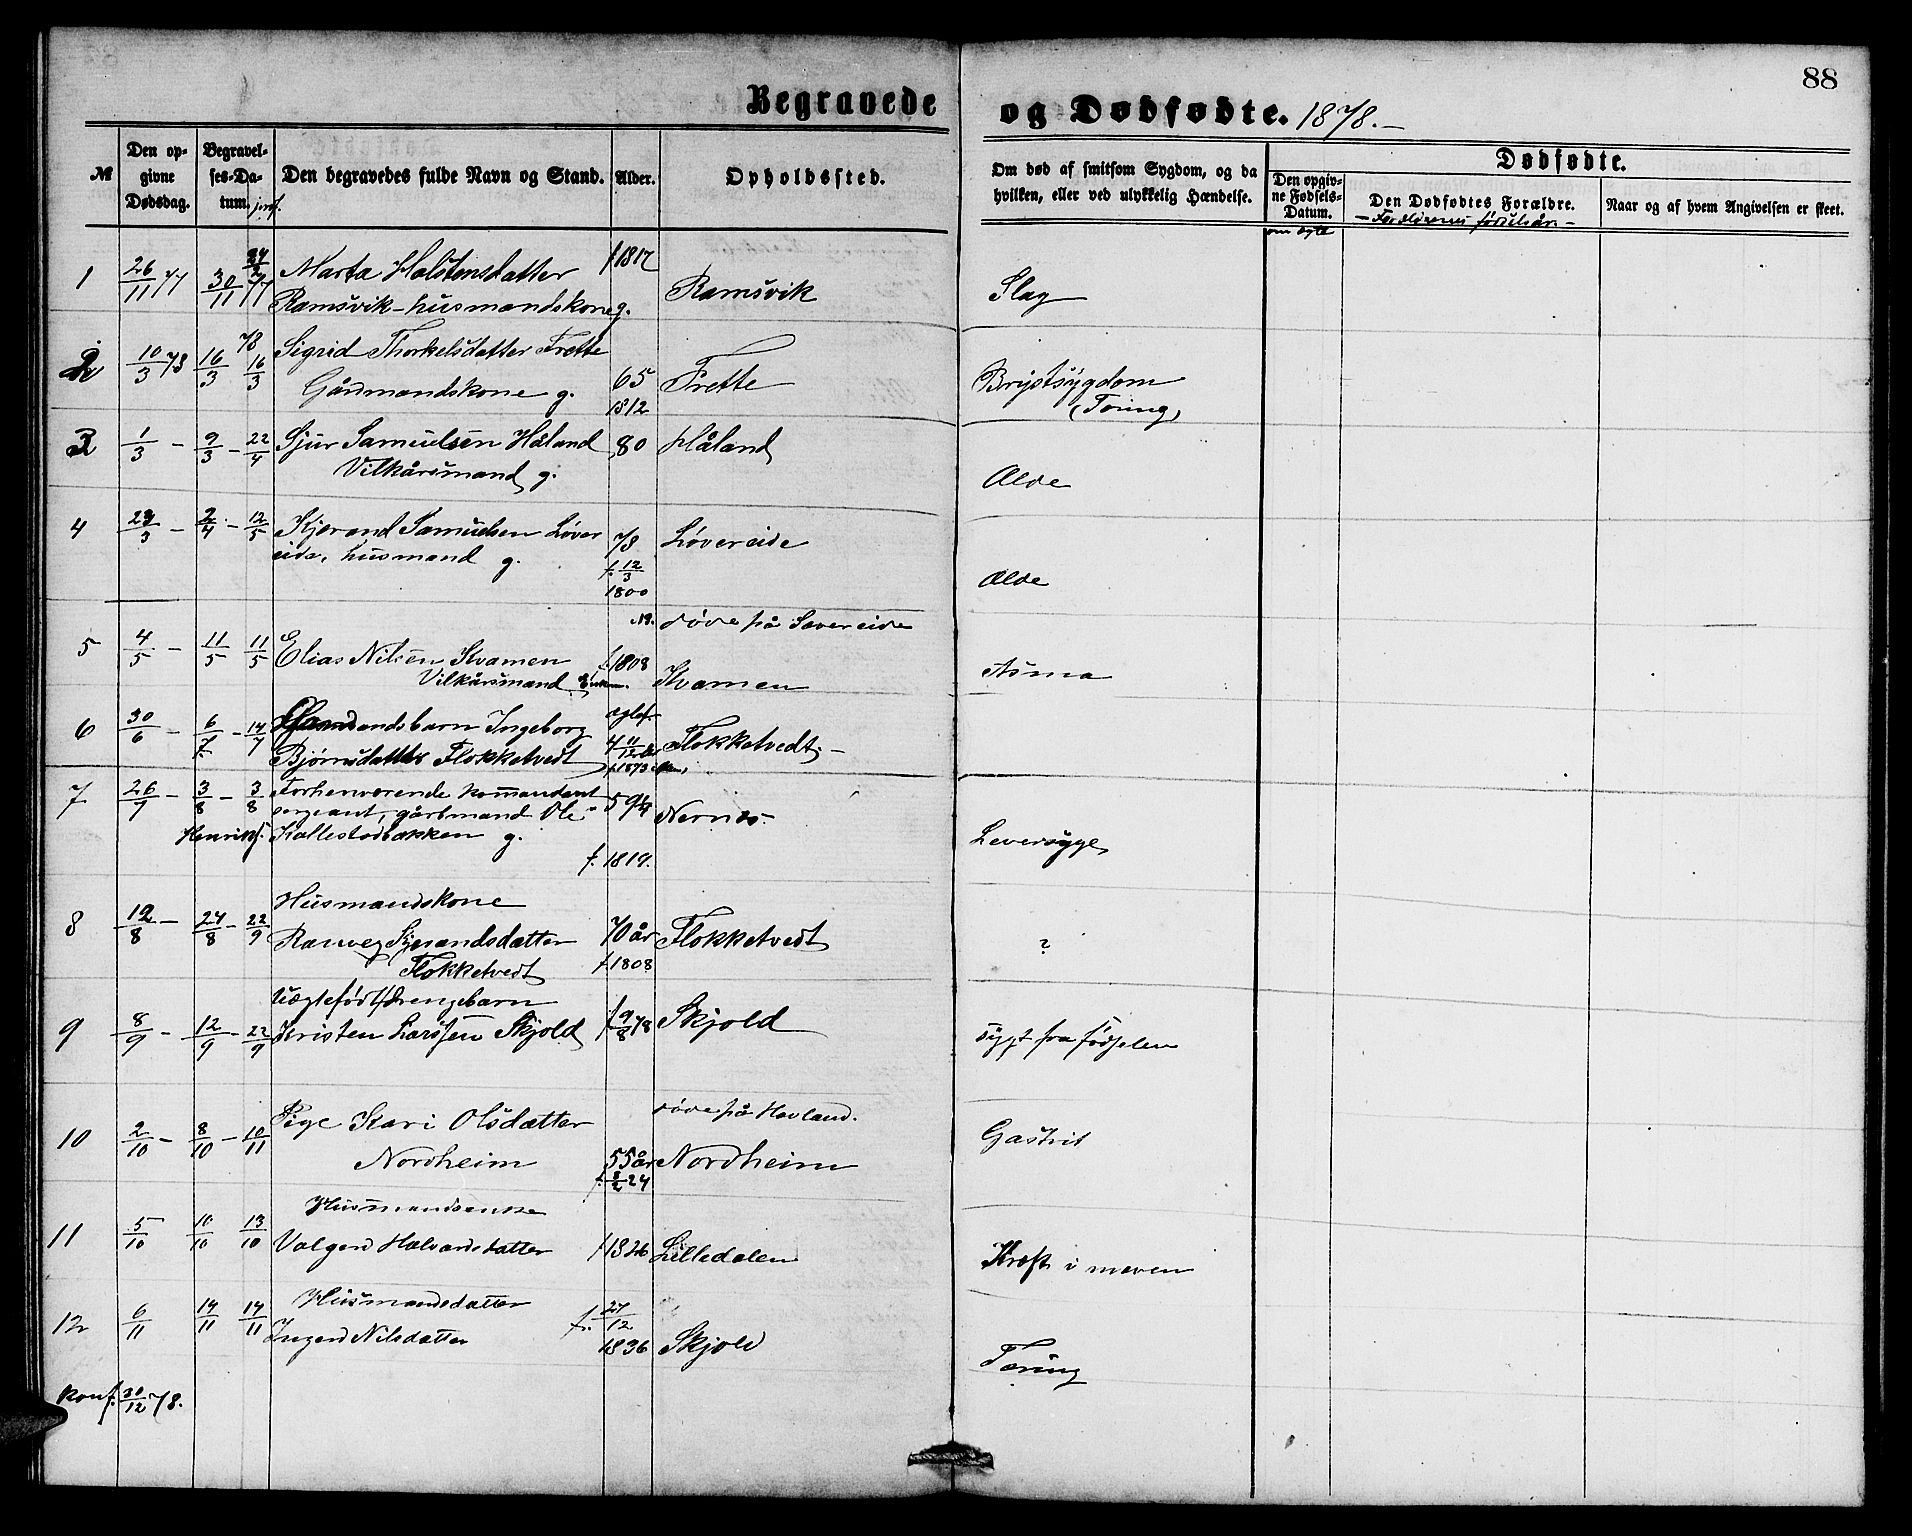 88
Begravede og Dødfødte. 1878.–
№
Den opgivne Dødsdag.
Begravelses-Datum. jordf.
Den begravedes fulde Navn og Stand.
Alder.
Opholdssted.
Om død af smitsom Sygdom, og da hvilken, eller ved ulykkelig Hændelse.
Dødfødte.
Den opgivne Fødsels-Datum.
om ægte
Den Dødfødtes Forældre.
– Forældrenes fødselsår. –
Naar og af hvem Angivelsen er skeet.
1 26/11 77 30/11 77 Marta Halstensdatter f 1817 Ramsvik Slag
Ramsvik – husmandskone g.
2 10/3 78 16/3 78 16/3 Sigrid Thorkelsdatter Frette 65 Frette Brystsygdom
Gårdmandskone g. 1812 (Tæring)
3 1/3 – 9/3 – 22/4 Sjur Samuelsen Håland 80 Håland Ælde
Vilkårsmand g.
4 – 2/4 – 12/5 Kjerand Samuelsen Løver 78 Løvereide Ælde
eide, husmand g. f. 12/3 1800
5 4/5 – 11/5 11/5 Elias Nilsen Kvamen f. 1808 døde på Løvereide Asma
Vilkårsmand Enkem. Kvamen
6 30/6 – 6/7 – 14/7 Ingeborg ægtef. Flokketvedt. –
Bjørnsdatter Flokketvedt 4 11/12 f. 1873
7 26/7 – 3/8 – 3/8 Forhenværende kommandant 59 Nernes. Leversyge
sergeant, gårdmand Ole
Henriks. Kallestadbakken g.
f. 1819.
8 12/8 – 24/8 – 22/9 Husmandskone
Ranveg Kjerandsdatter 70 år Flokketvedt ?
Flokketvedt f. 1808
9 8/9 – 12/9 – 22/9 Uægtefødt drengebarn
Kristen Larssen Skjold f 9/8 78 Skjold sygt fra fødselen
10 2/10 – 8/10 – 10/11 Pige Kari Olsdatter døde på Hovland. Gastrit
Nordheim 55 år Nordheim
f. 3/2 24
11 5/10 10/10 13/10 Husmandsenke
Valgerd Halvardsdatter f. 1826 Lilledalen Kræft i maven
12 6/11 14/11 14/11 Husmandsdatter f. 27/12 1836
Ingerd Nilsdatter Skjold Tæring
konf. 30/12 78.